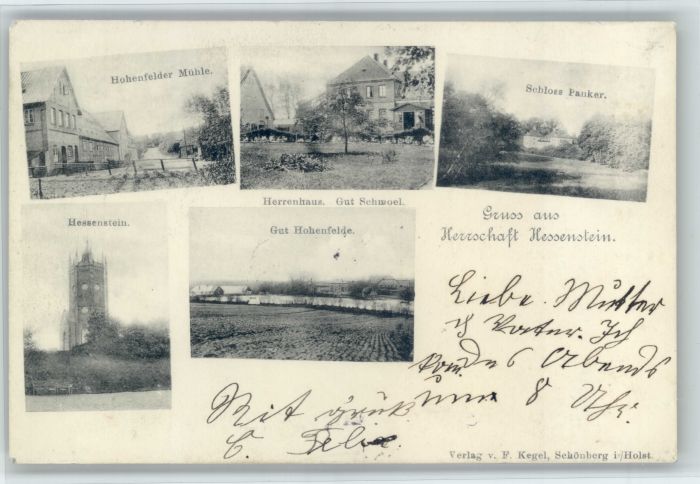 Hohenfelder Mühle.
Schloss Panker.
Herrenhaus. Gut Schmoel.
Hessenstein.
Gut Hohenfelde.
Gruss aus
Herrschaft Hessenstein.
Liebe Mutter
Vater. Ich
des Abends
um 8 Uhr.
Mit
Verlag v. F. Kegel, Schönberg i/Holst.